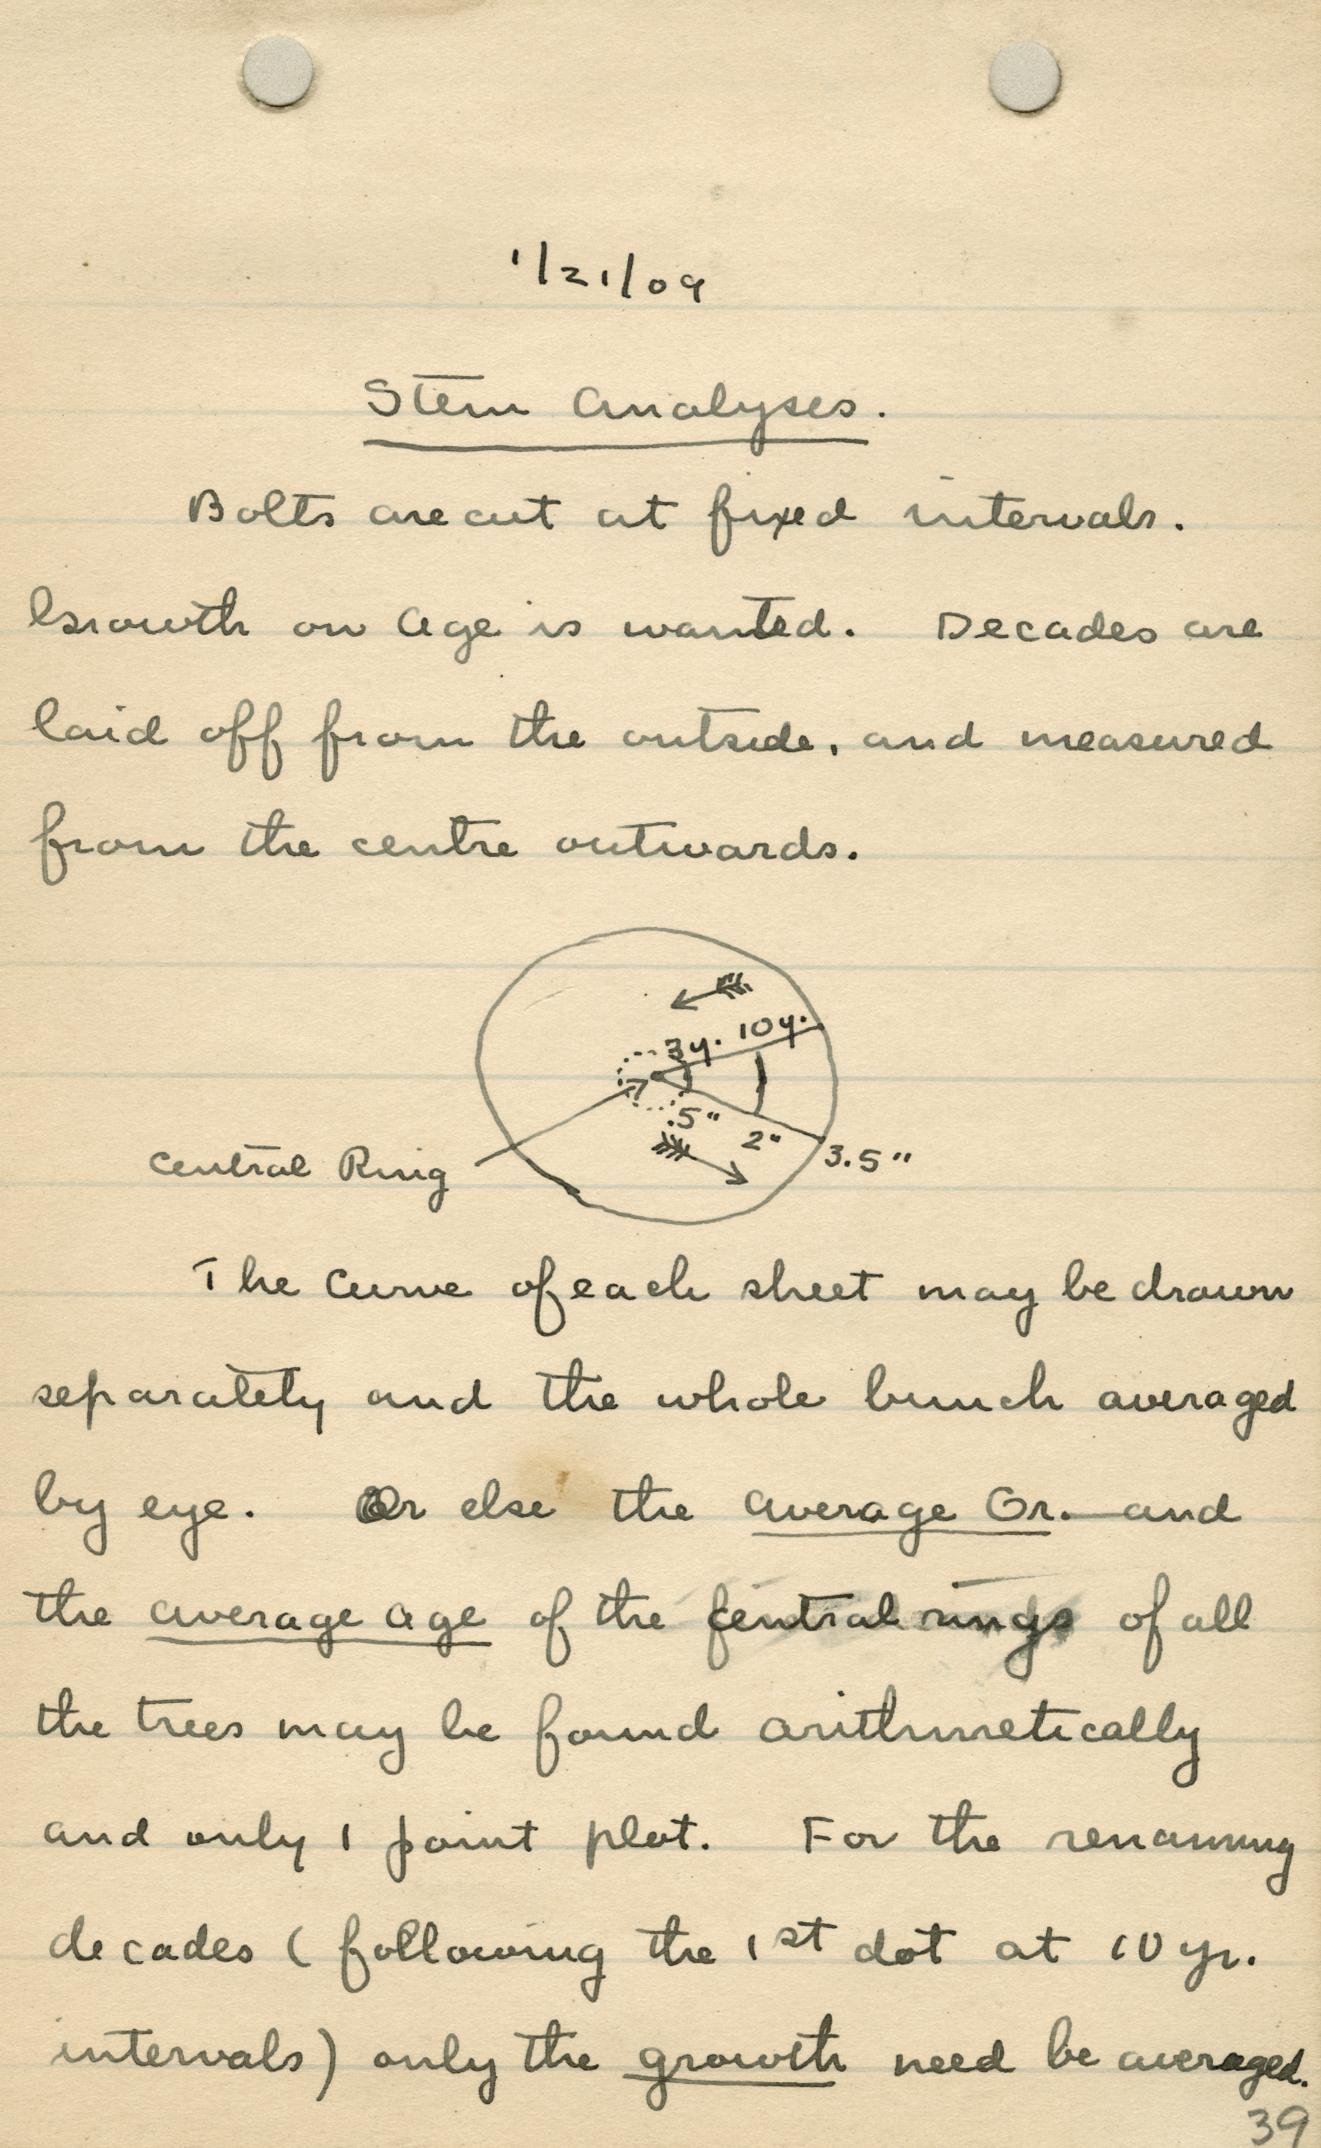 1/21/09
Stem Analyses.
Bolts are cut at fixed intervals.
Growth on Age is wanted. Decades are
laid off from the outside, and measured
from the centre outwards.
3y. 10y.
.5" 2" 3.5"
Central Ring
The Curve of each sheet may be drawn
separately and the whole bunch averaged
by eye. Or else the average Gr. and
the average age of the central rings of all
the trees may be found arithmetically
and only 1 point plot. For the remaining
decades (following the 1st dot at 10 yr.
intervals) only the growth need be averaged.
39